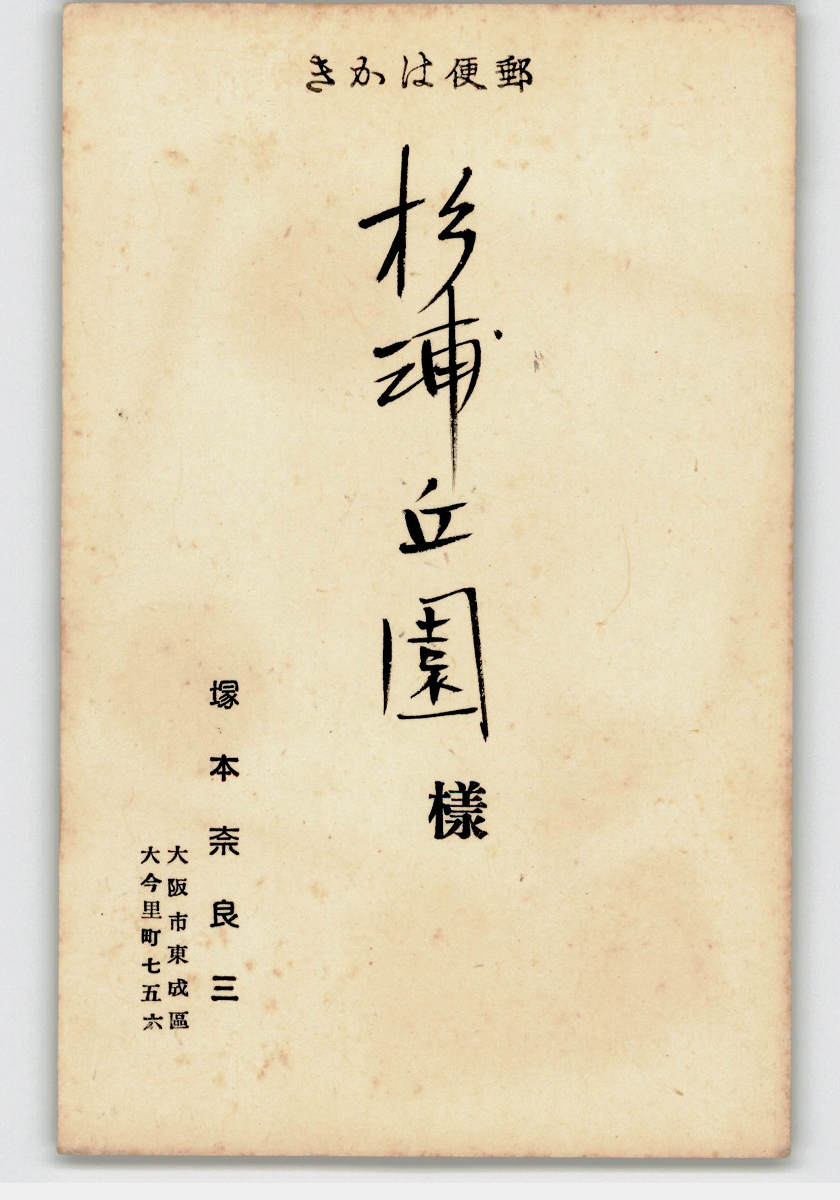 郵便はかき
杉浦丘園様
塚本奈良三
大阪市東成區
大今里町七五六